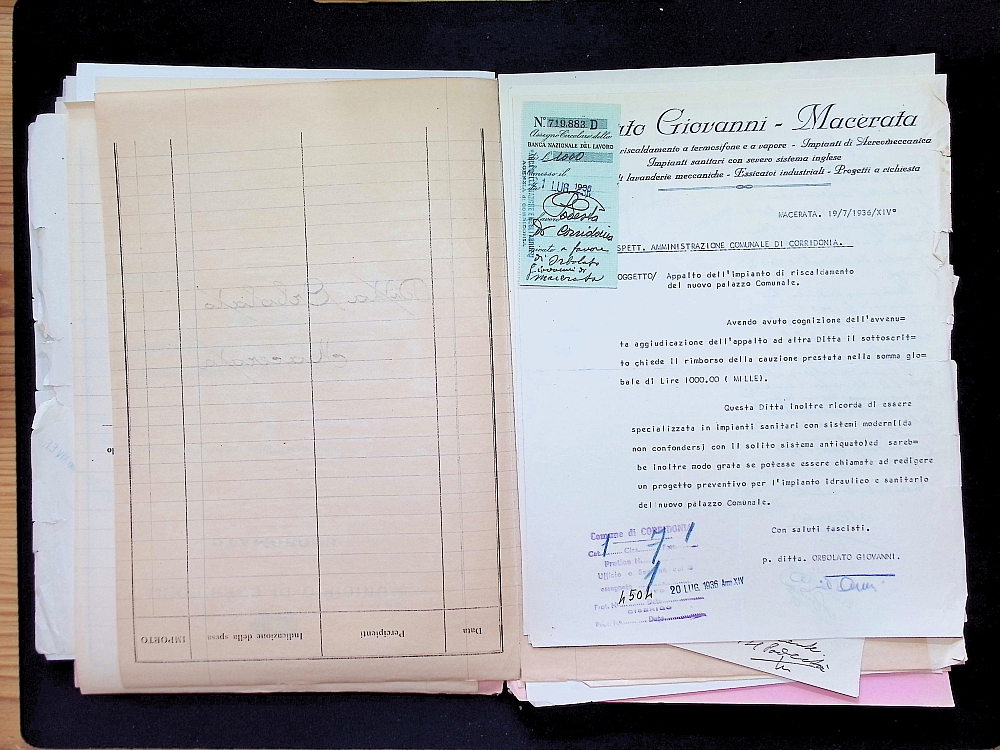 Data
Percipienti
Indicazione della spesa
IMPORTO
N° 719.883 D
Assegno Circolare della
BANCA NAZIONALE DEL LAVORO
di L. 1000
1 LUG 1936
Podestà
di Corridonia
a favore
di Orbolato
Giovanni di
Macerata
ato Giovanni - Macerata
riscaldamento a termosifone e a vapore - Impianti di Aereomeccanica
Impianti sanitari con severo sistema inglese
di lavanderie meccaniche - Essicatoi industriali - Progetti a richiesta
MACERATA. 19/7/1936/XIV°
SPETT. AMMINISTRAZIONE COMUNALE DI CORRIDONIA.
OGGETTO/ Appalto dell'impianto di riscaldamento
del nuovo palazzo Comunale.
Avendo avuto cognizione dell'avvenu=
ta aggiudicazione dell'appalto ad altra Ditta il sottoscrit=
to chiede il rimborso della cauzione prestata nella somma glo=
bale di Lire 1000.00 ( MILLE).
Questa Ditta inoltre ricorda di essere
specializzata in impianti sanitari con sistemi moderni(da
non confondersi con il solito sistema antiquato)ed sareb=
be inoltre modo grata se potesse essere chiamata ad redigere
un progetto preventivo per l'impianto idraulico e sanitario
del nuovo palazzo Comunale.
Con saluti fascisti.
p. ditta. ORBOLATO GIOVANNI.
Comune di CORRIDONIA
Cat. 1 Clas. 7 Fasc. 1
Pratica N.
Ufficio
4504 20 LUG. 1936 Anno XIV
Prot. N.
Data